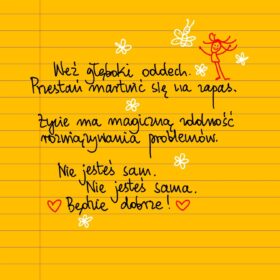 Weź głęboki oddech.
Przestań martwić się na zapas.
Życie ma magiczną zdolność
rozwiązywania problemów.
Nie jesteś sam.
Nie jesteś sama.
Będzie dobrze!